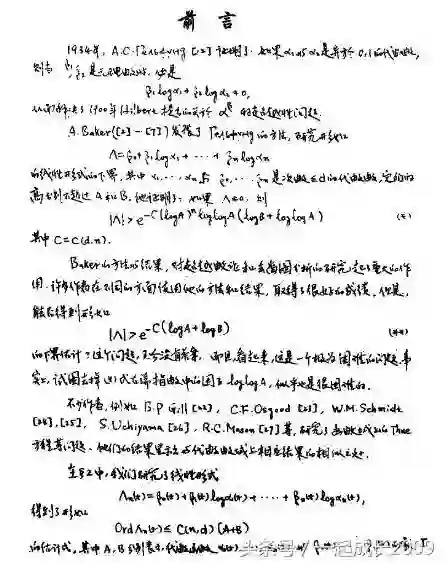 前 言
1934年, A.O. Гельфонд [12] 证明了: 如果 α₁ 与 α₂ 是异于 0,1 的代数数,
β₁, β₂ 是 则
β₁logα₁ + β₂logα₂ ≠ 0,
从而解决了1900年 Hilbert 提出的关于 的超越性问题.
A. Baker([2] – [7]) 发展了 Гельфонд 的方法, 研究形如
Λ = β₀ + β₁logα₁ + ⋯ + βₙlogαₙ
的线性形式的下界, 其中 α₁, ⋯, αₙ 与 β₀, ⋯, βₙ 是次数≤d的代数数, 它们的
高分别不超过 A 和 B. 他证明了: 如果 Λ≠0, 则
|Λ| > e^{-C(logA)^n loglogA (logB + loglogA)} (*)
其中 C=C(d,n).
Baker的方法和结果, 对超越数论和丢番图分析的研究, 起了重大的作
用. 许多作者在不同的方面使用他的方法和结果, 取得了很出色的成绩. 但是,
能否得到形如
|Λ| > e^{-C(logA + logB)} (**)
的下界估计? 这个问题, 至今没有答案. 而且, 看起来, 这是一个极为困难的问题. 事
实上, 试图去掉(*)式右端指数中的因子 loglogA, 似乎也是很困难的.
不少作者, 例如 B.P. Gill [22], C.F. Osgood [23], W.M. Schmidt
[24],[25], S. Uchiyama [26], R.C. Mason [27]等, 研究了函数域上的 Thue
方程等问题. 他们的结果显示出与代数数域上相应结果的相似之处.
在§2中, 我们研究了线性形式
Λₙ(t) = β₀(t) + β₁(t)logα₁(t) + ⋯ + βₙ(t)logαₙ(t),
得到了形如
OrdΛₙ(t) ≤ C(n,d)(A+B)
的估计式, 其中 A, B 分别表示代数函数
头条号/一起成长2009
I